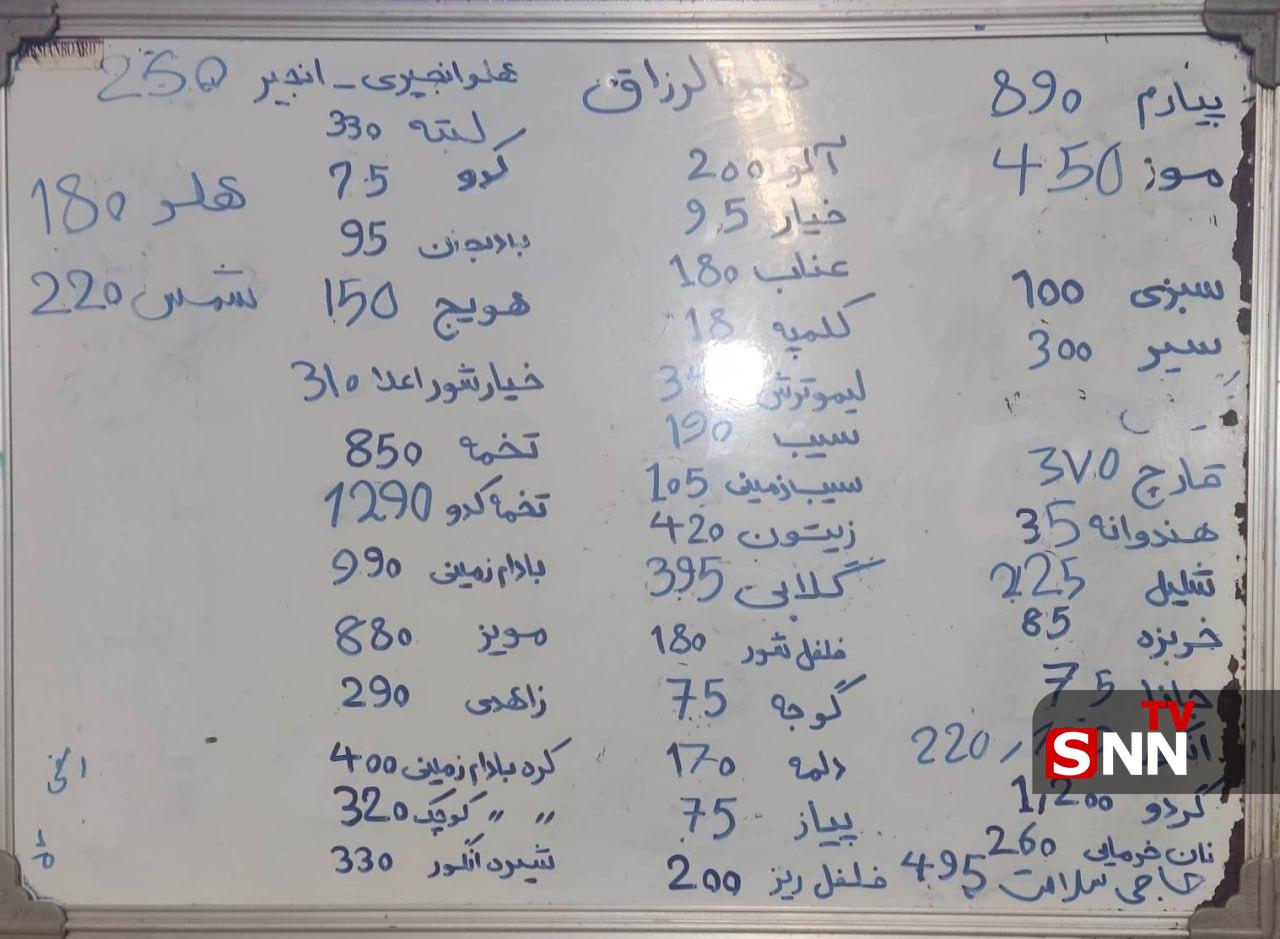 پیارم 890
موز 450
سبزی 100
سیر 300
قارچ 3V0
هندوانه 35
شلیل 225
خربزه 85
جانا 75
220,
گردو 1,200
نان خرمایی 260
حاجی سلامت 495
هو الرزاق
آلو 200
خیار 95
عناب 180
کلمپه 18
لیموترش 3
سیب 190
سیب زمینی 105
زیتون 420
گلابی 395
فلفل شور 180
گوجه 75
دلمه 170
پیاز 75
فلفل ریز 200
هلو انجیری - انجیر 250
لسته 330
کدو 75
بادمجان 95
هویج 150
خیارشور اعلا 310
تخمه 850
تخمه کدو 1290
بادام زمینی 990
مویز 880
زاهدی 290
کره بادام زمینی 400
" " کوچک 320
شیره انگور 330
هلو 180
شمس 220
SNN TV